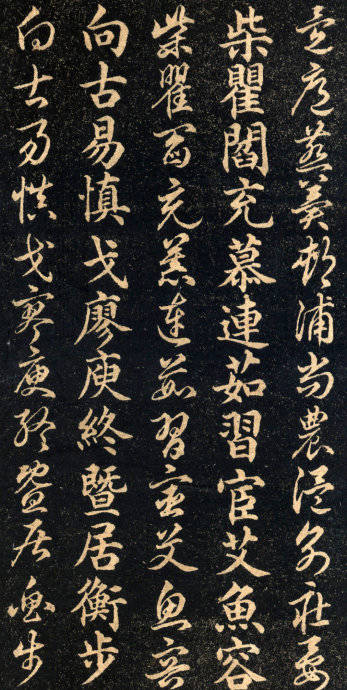 邊扈燕冀郟浦尚農溫別莊晏
柴瞿閻充慕連茹習宦艾魚容
柴瞿閻充慕連茹習宦艾魚容
向古易慎戈廖庾終暨居衡步
向古易慎戈廖庾終暨居衡步